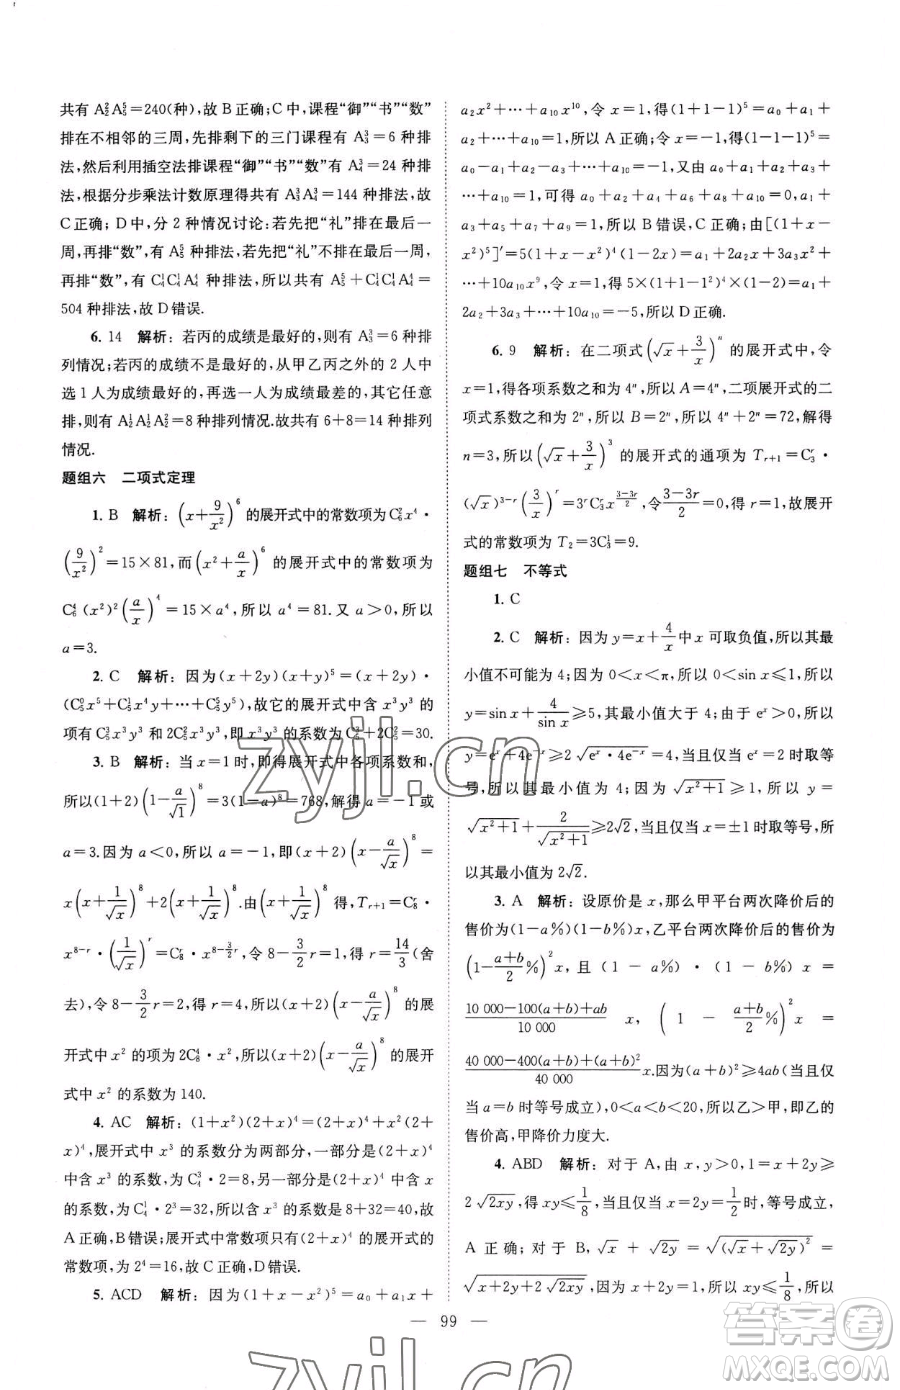 共有 A₂²A₅⁵=240(种),故 B 正确;C 中,课程“御”“书”“数”
排在不相邻的三周,先排剩下的三门课程有 A₃³=6 种排
法,然后利用插空法排课程“御”“书”“数”有 A₄³=24 种排
法,根据分步乘法计数原理得共有 A₃³A₄³=144 种排法,故
C 正确;D 中,分 2 种情况讨论:若先把“礼”排在最后一
周,再排“数”,有 A₅⁵ 种排法,若先把“礼”不排在最后一周,
再排“数”,有 C₄¹C₄¹A₄⁴ 种排法,所以共有 A₅⁵+C₄¹C₄¹A₄⁴=
504 种排法,故 D 错误.
6. 14 解析:若丙的成绩是最好的,则有 A₃³=6 种排
列情况;若丙的成绩不是最好的,从甲乙丙之外的 2 人中
选 1 人为成绩最好的,再选一人为成绩最差的,其它任意
排,则有 A₂¹A₂¹A₂²=8 种排列情况.故共有 6+8=14 种排列
情况.
题组六 二项式定理
1. B 解析:(x+9/x²)⁶ 的展开式中的常数项为 C₆²x⁴·
(9/x²)²=15×81,而(x²+a/x)⁶ 的展开式中的常数项为
C₆⁴(x²)²(a/x)⁴=15×a⁴,所以 a⁴=81.又 a>0,所以
a=3.
2. C 解析:因为(x+2y)(x+y)⁵=(x+2y)·
(C₅⁰x⁵+C₅¹x⁴y+…+C₅⁵y⁵),故它的展开式中含 x³y³ 的
项有 C₅³x³y³ 和 2C₅²x³y³,即 x³y³ 的系数为 C₅³+2C₅²=30.
3. B 解析:当 x=1 时,得展开式中各项系数和,
所以(1+2)(1-a/√1)⁸=3(1-a)⁸=768,解得 a=-1 或
a=3.因为 a<0,所以 a=-1,即(x+2)(x-a/√x)⁸=
x(x+1/√x)⁸+2(x+1/√x)⁸.由(x+1/√x)⁸得,Tᵣ₊₁=C₈ʳ·
x⁸⁻ʳ·(1/√x)ʳ=C₈ʳ·x^(8-3/2r),令 8-3/2r=1,得 r=14/3(舍
去),令 8-3/2r=2,得 r=4,所以(x+2)(x-a/√x)⁸的展
开式中 x² 的项为 2C₈⁴·x²,所以(x+2)(x-a/√x)⁸的展开
式中 x² 的系数为 140.
4. AC 解析:(1+x²)(2+x)⁴=(2+x)⁴+x²(2+
x)⁴,展开式中 x³ 的系数分为两部分,一部分是(2+x)⁴
中含 x³ 的系数 C₄³·2=8,另一部分是(2+x)⁴ 中含 x 项
的系数 C₄¹·2³=32,所以含 x³ 的系数是 8+32=40,故
A 正确,B 错误;展开式中常数项只有(2+x)⁴ 展开式的
常数项,为 2⁴=16,故 C 正确,D 错误.
5. ACD 解析:因为(1+x-x²)⁵=a₀+a₁x+
a₂x²+…+a₁₀x¹⁰,令 x=1,得(1+1-1)⁵=a₀+a₁+
a₂+…+a₁₀=1,所以 A 正确;令 x=-1,得(1-1-1)⁵=
a₀-a₁+…+a₁₀=-1,可得 a₀+a₂+a₄+a₆+a₈+a₁₀=0,a₁+
a₃+a₅+a₇+a₉=1,所以 B 错误,C 正确;由[(1+x-
x²)⁵]′=5(1+x-x²)⁴(1-2x)=a₁+2a₂x+3a₃x²+
…+10a₁₀x⁹,令 x=1,得 5×(1+1-1²)⁴×(1-2)=a₁+
2a₂+3a₃+…+10a₁₀=-5,所以 D 正确.
6. 9 解析:在二项式(√x+3/x)ⁿ 的展开式中,令
x=1,得各项系数之和为 4ⁿ,所以 A=4ⁿ,二项展开式的二
项式系数之和为 2ⁿ,所以 B=2ⁿ,所以 4ⁿ+2ⁿ=72,解得
n=3,所以(√x+3/x)³ 的展开式的通项为 Tᵣ₊₁=C₃ʳ·
(√x)³⁻ʳ(3/x)ʳ=3ʳC₃ʳx^((3-3r)/2),令(3-3r)/2=0,得 r=1,故展
开式的常数项为 T₂=3C₃¹=9.
题组七 不等式
1. C
2. C 解析:因为 y=x+4/x中 x 可取负值,所以其最
小值不可能为 4;因为 0<x<π,所以 0<sin x≤1,所以
sin x+4/sin x≥5,其最小值大于 4;由于 eˣ>0,所以
y=eˣ+4e⁻ˣ≥2√(eˣ·4e⁻ˣ)=4,当且仅当 eˣ=2 时取等
号,所以其最小值为 4;因为 √(x²+1)≥1,所以 y=
√(x²+1)+2/√(x²+1)≥2√2,当且仅当 x=±1 时取等号,所
以其最小值为 2√2.
3. A 解析:设原价是 x,那么甲平台两次降价后的
售价为(1-a%)(1-b%)x,乙平台两次降价后的售价为
(1-(a+b)/2%)²x,且(1-a%)·(1-b%)x=
(10 000-100(a+b)+ab)/10 000 x,(1-(a+b)/2%)²x=
(40 000-400(a+b)+(a+b)²)/40 000 x.因为(a+b)²≥4ab(当且仅
当 a=b 时等号成立),0<a<b<20,所以乙>甲,即乙的
售价高,甲降价力度大.
4. ABD 解析:对于 A,由 x,y>0,1=x+2y≥
2√(2xy),得 xy≤1/8,当且仅当 x=2y=1/2时,等号成立,
A 正确;对于 B,√x+√(2y)=√((√x+√(2y))²)=
√(x+2y+2√(2xy)),因为 2√(2xy)≤x+2y=1,xy≤1/8,所以
— 99 —
zyjl.cn
zyjl.cn
答案圈
MXQE.COM